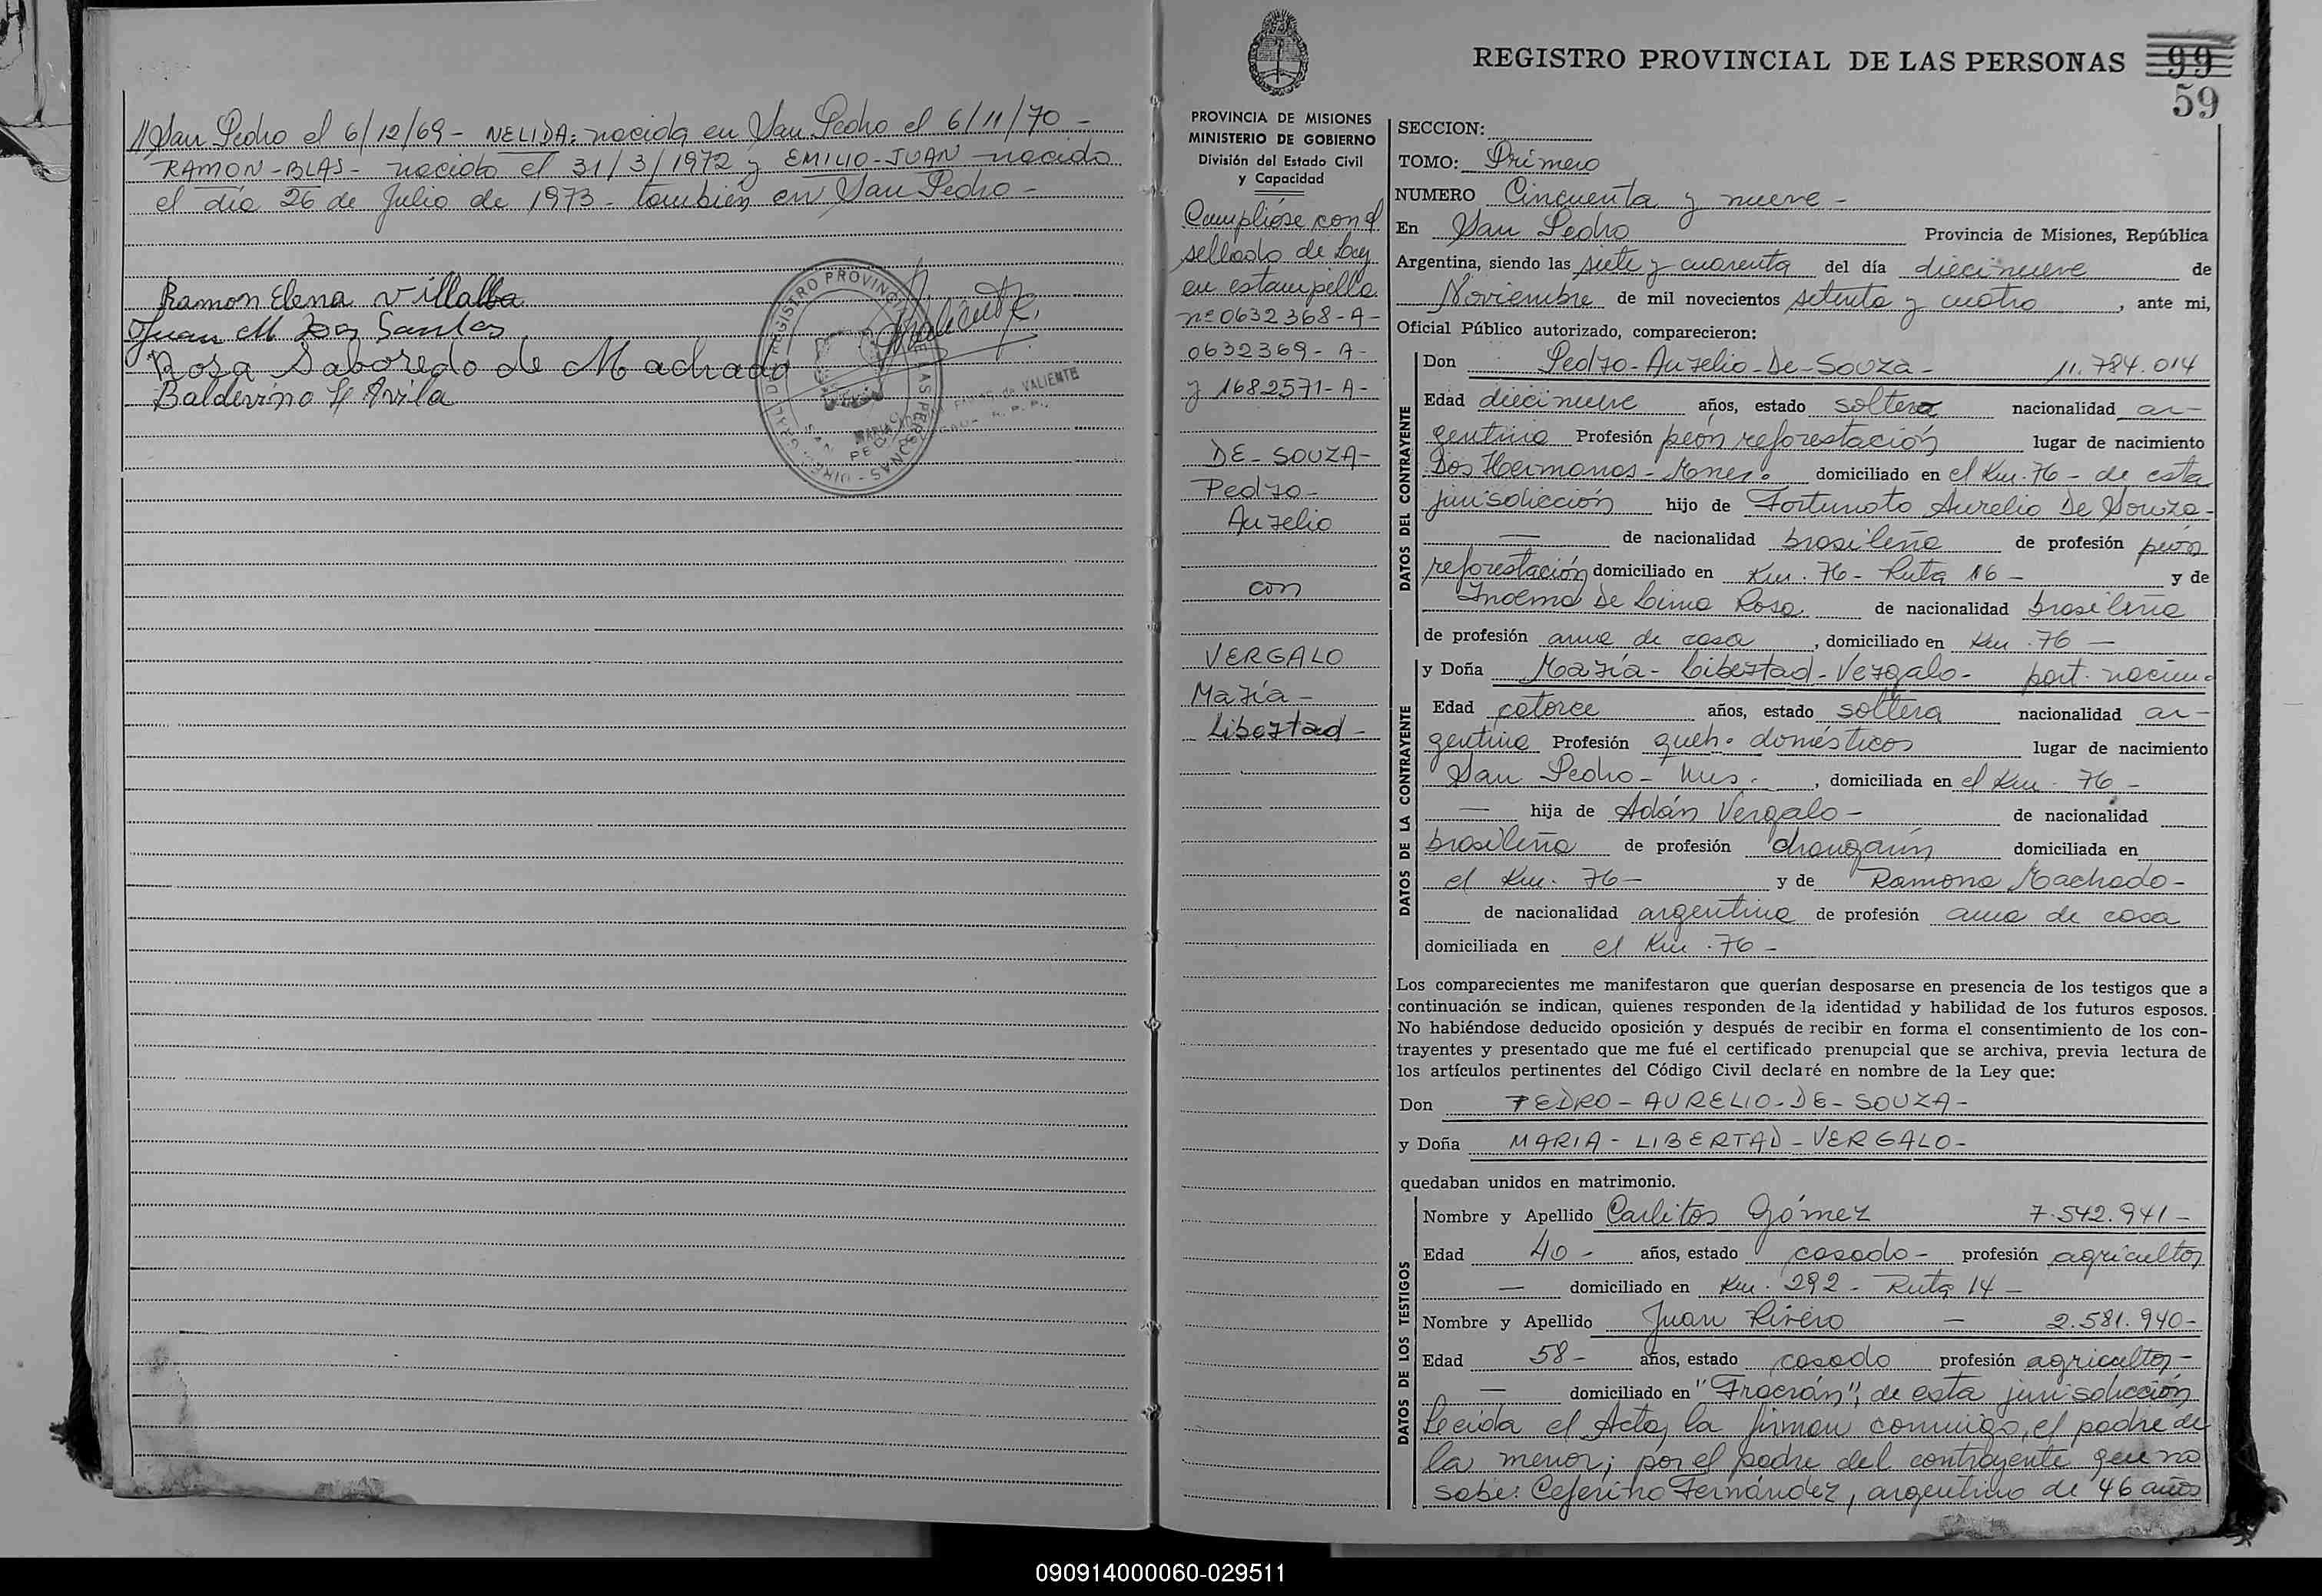 // San Pedro el 6/12/69 - NELIDA: nacida en San Pedro el 6/11/70 -
RAMON-BLAS - nacido el 31/3/1972 y EMILIO-JUAN nacido
el día 26 de Julio de 1973 - también en San Pedro -
Ramon Elena Villalba
Juan M Dos Santos
Rosa Saboredo de Machado
Baldevino F Avila
REGISTRO PROVINCIAL DE LAS PERSONAS
SAN PEDRO
VALIENTE
REGISTRO PROVINCIAL DE LAS PERSONAS 99
59
PROVINCIA DE MISIONES
MINISTERIO DE GOBIERNO
División del Estado Civil
y Capacidad
Cumplióse con el
sellado de Ley
en estampilla
nº 0632368-A-
0632369-A-
y 1682571-A-
DE-SOUZA-
Pedro-
Aurelio
con
VERGALO
María-
Libertad-
SECCION:
TOMO: Primero
NUMERO Cincuenta y nueve -
En San Pedro Provincia de Misiones, República
Argentina, siendo las siete y cuarenta del día diecinueve de
Noviembre de mil novecientos setenta y cuatro, ante mi,
Oficial Público autorizado, comparecieron:
DATOS DEL CONTRAYENTE
Don Pedro-Aurelio-De-Souza- 11.784.014
Edad diecinueve años, estado soltero nacionalidad ar-
gentina Profesión peón reforestación lugar de nacimiento
Dos Hermanas - Mnes. domiciliado en el Km. 76 - de esta
jurisdicción hijo de Fortunato Aurelio De Souza-
— de nacionalidad brasileña de profesión peón
reforestación domiciliado en Km. 76 - Ruta 16 - y de
De Lima Rosa de nacionalidad brasileña
de profesión ama de casa, domiciliado en Km. 76 —
DATOS DE LA CONTRAYENTE
y Doña María-Libertad-Vergalo- part. nacim.
Edad catorce años, estado soltera nacionalidad ar-
gentina Profesión queh. domésticos lugar de nacimiento
San Pedro - Mnes., domiciliada en el Km. 76 -
— hija de Adán Vergalo - de nacionalidad
brasileña de profesión changarín domiciliada en
el Km. 76 - y de Ramona Machado-
de nacionalidad argentina de profesión ama de casa
domiciliada en el Km. 76 -
Los comparecientes me manifestaron que querían desposarse en presencia de los testigos que a
continuación se indican, quienes responden de la identidad y habilidad de los futuros esposos.
No habiéndose deducido oposición y después de recibir en forma el consentimiento de los con-
trayentes y presentado que me fué el certificado prenupcial que se archiva, previa lectura de
los artículos pertinentes del Código Civil declaré en nombre de la Ley que:
Don PEDRO-AURELIO-DE-SOUZA-
y Doña MARIA-LIBERTAD-VERGALO-
quedaban unidos en matrimonio.
DATOS DE LOS TESTIGOS
Nombre y Apellido Carlitos Gómez 7.542.941-
Edad 40 - años, estado casado - profesión agricultor
— domiciliado en Km. 292 - Ruta 14 -
Nombre y Apellido Juan Rivero — 2.581.940-
Edad 58 - años, estado casado profesión agricultor-
— domiciliado en "Fracrán", de esta jurisdicción
Leida el Acta, la firman conmigo, el padre de
la menor; por el padre del contrayente que no
sabe: Ceferino Fernández, argentino de 46 años
090914000060-029511